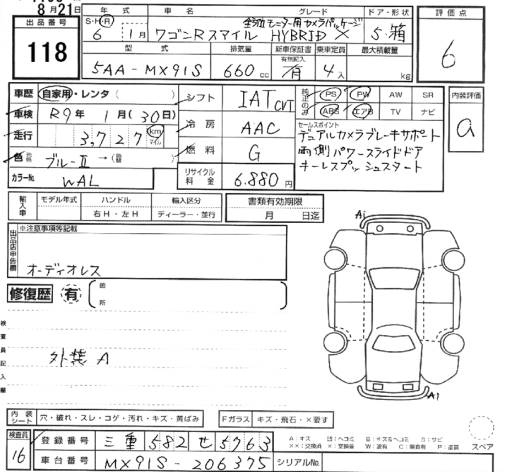 8月21日
出品番号
118
年式 車名 グレード ドア・形状
S・H・R
6年 1月 ワゴンRスマイル HYBRID X 5箱
全方位モニター用カメラパッケージ
型式 排気量 新車保証書 乗車定員 最大積載量
有無記入
5AA-MX91S 660cc 有 4人 kg
評価点
6
車歴 自家用・レンタ( )
車検 R9年 1月 (30日)
走行 3,727 km マイル
色 ブルーⅡ→( )
カラーNo. WAL
シフト IAT CVT
冷房 AAC
燃料 G
リサイクル料金 6.880円
純正のみ
PS PW AW SR
ABS エアB TV ナビ
セールスポイント
デュアルカメラブレーキサポート
両側パワースライドドア
キーレスプッシュスタート
内装評価
a
輸入車 モデル年式 ハンドル 輸入区分
右H・左H ディーラー・並行
書類有効期限
月 日迄
出品店申告欄
※注意事項等記載
オーディオレス
修復歴 有
箇所
検査員記入欄
外装 A
A1
A1
内装シート 穴・破れ・スレ・コゲ・汚れ・キズ・黄ばみ
Fガラス キズ・飛石・X要す
検査員
16
登録番号 三重 582 せ 5763
車台番号 MX91S-206375
シリアルNo.
スペア